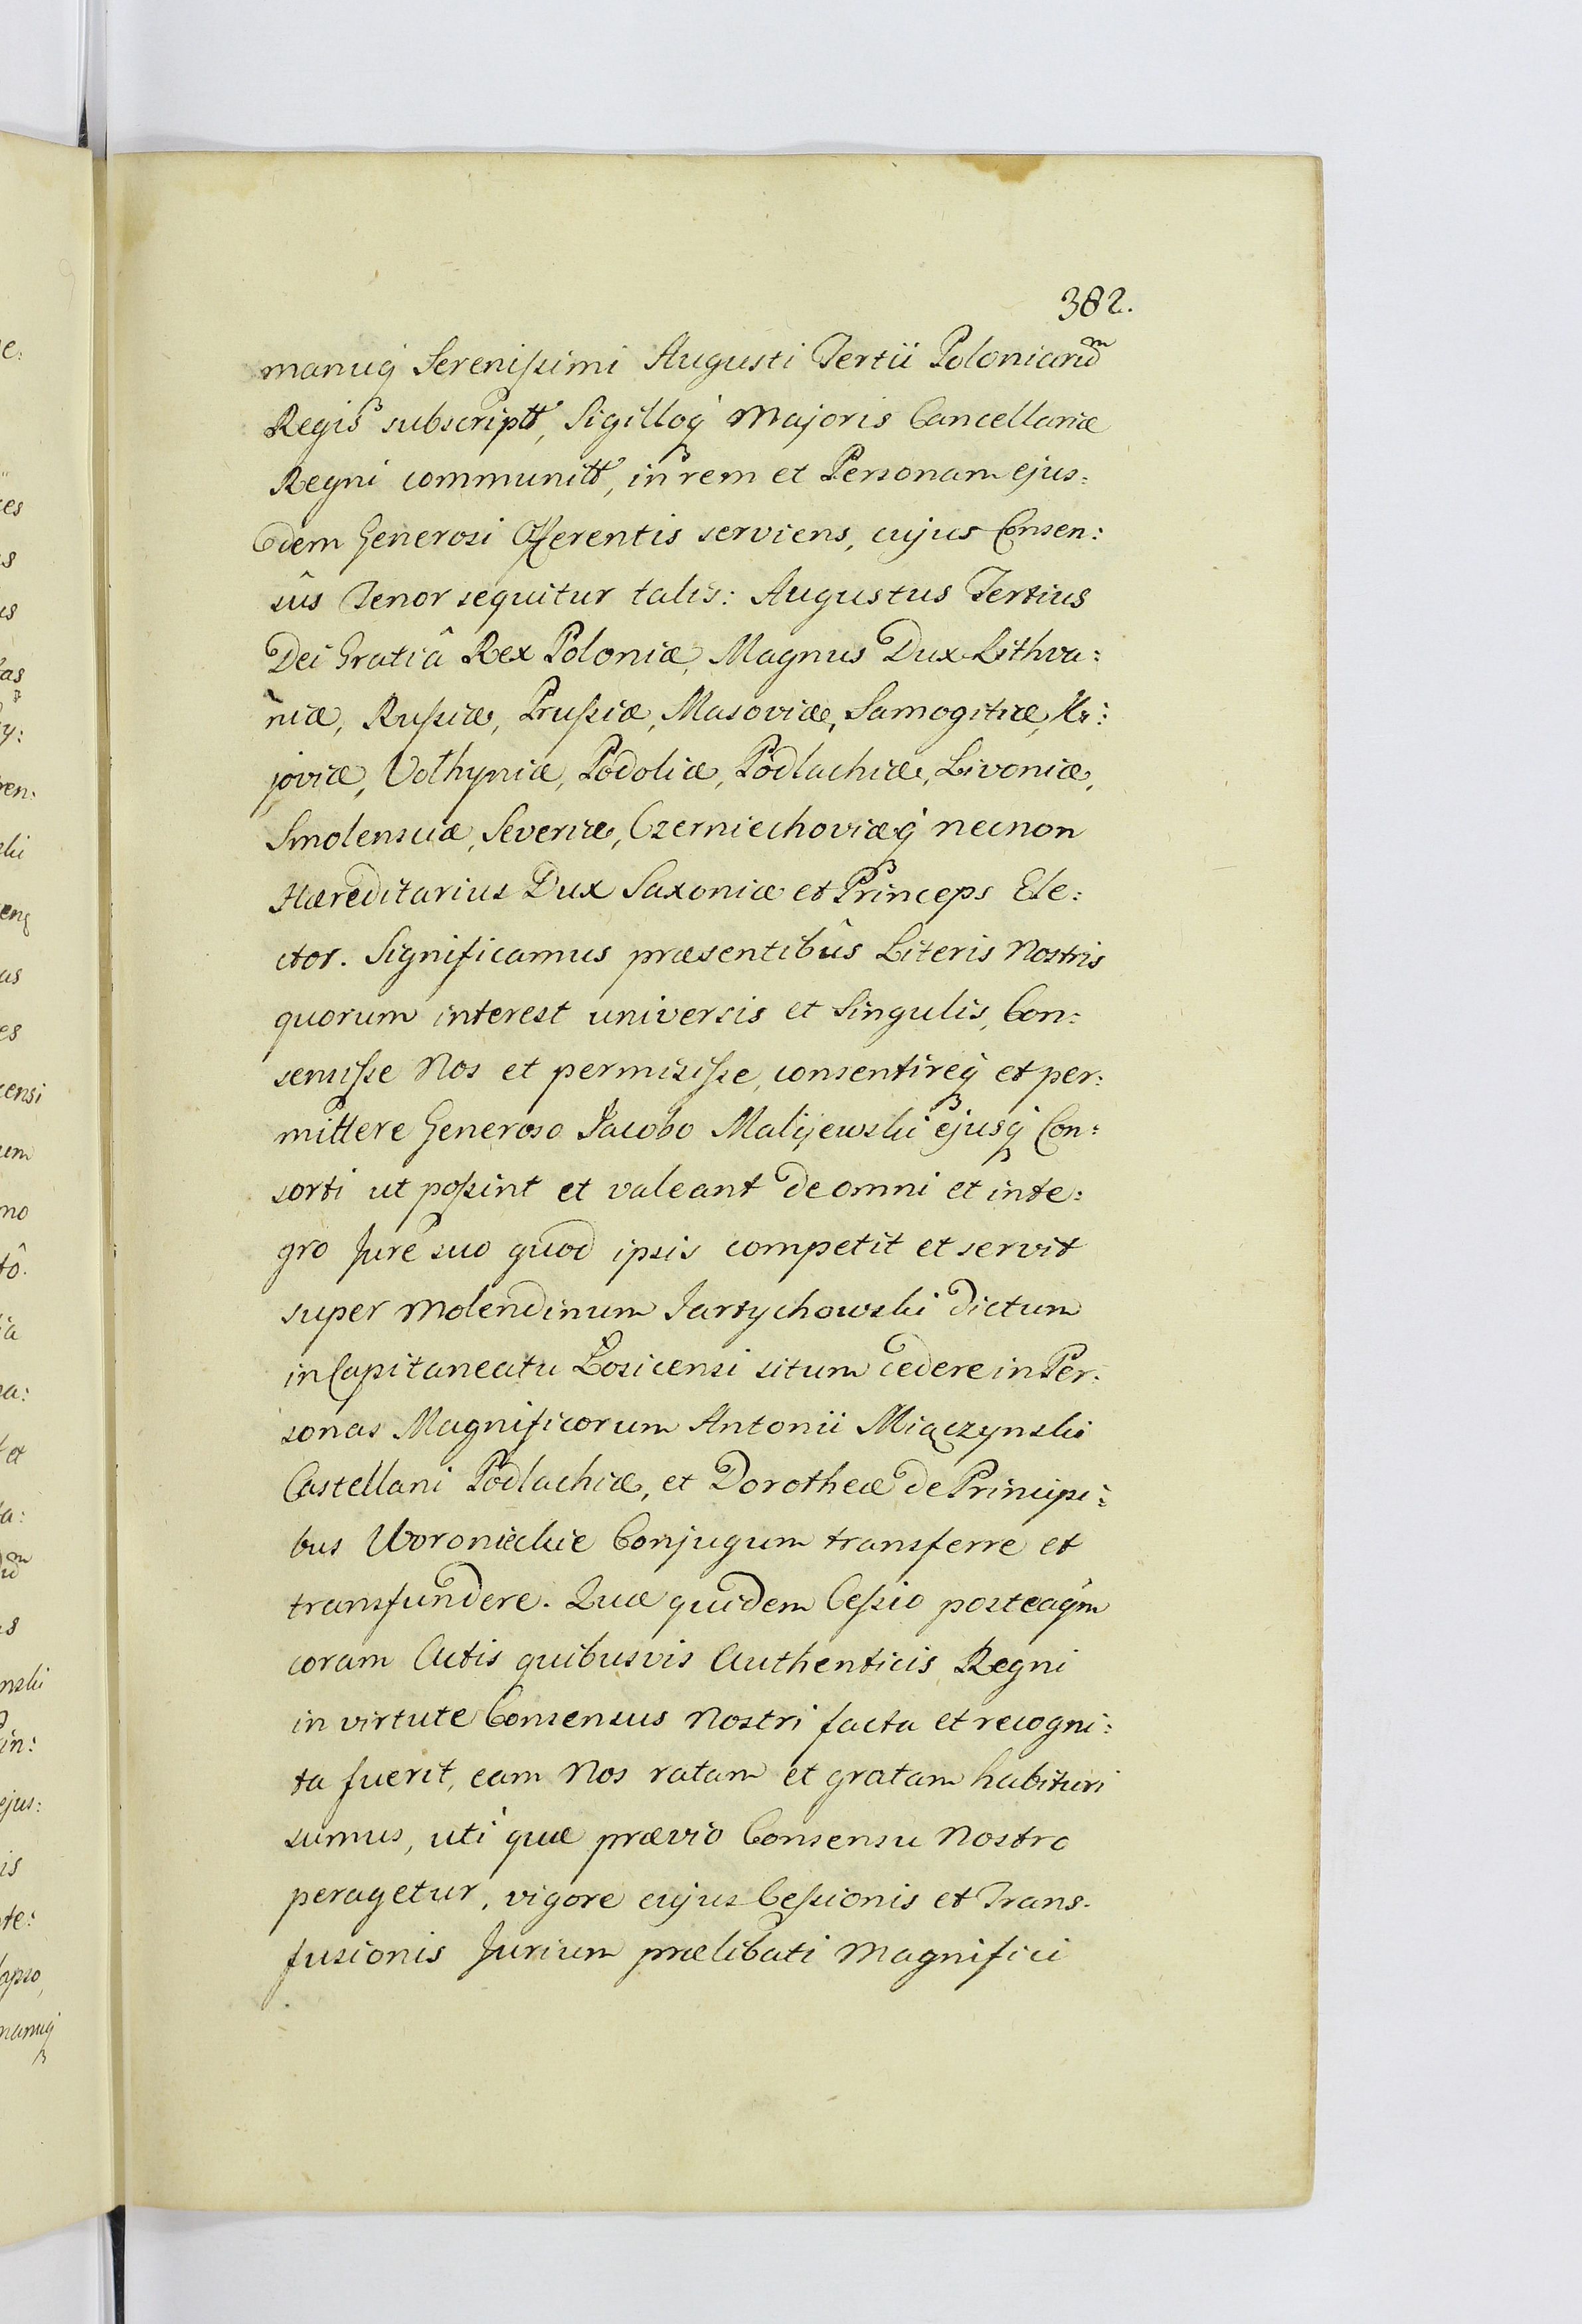 382.
manuq́ Serenissimi Augusti Tertii Poloniarũm
Regis subscriptt, Sigilloq́ Majoris Cancellariæ
Regni communitt, in rem et Personam ejus:
dem Generosi Offerentis serviens, cujus Consen:
sûs Tenor sequitur talis: Augustus Tertius
Dei Gratiâ Rex Poloniæ, Magnus Dux Lithva:
niæ, Russiæ, Prussiæ, Masoviæ, Samogitiæ, Ki:
joviæ, Volhyniæ, Podoliæ, Podlachiæ, Livoniæ,
Smolensciæ, Severiæ, Czerniechoviæq́ necnon
Hæreditarius Dux Saxoniæ et Princeps Ele:
ctor. Significamus præsentibûs Literis Nostris
quorum interest universis et Singulis, Con:
sensisse Nos et permisisse, consentireq́ et per:
mittere Generoso Jacobo Malijewski ejusq́ Con:
sorti ut possint et valeant de omni et inte:
gro Jure suo quod ipsis competit et servit
super Molendinum Jartychowski dictum
in Capitaneatu Łosicensi situm cedere in Per:
sonas Magnificorum Antonii Miączynski
Castellani Podlachiæ, et Dorotheæ de Principi:
bus Woronieckie Conjugum transferre et
transfundere. Quæ quidem Cessio posteaq́m
coram Actis quibusvis Authenticis Regni
in virtute Consensus Nostri facta et recogni:
ta fuerit, eam Nos ratam et gratam habituri
sumus, uti quæ prævio Consensu Nostro
peragetur, vigore cujus Cessionis et Trans.
fusionis Jurium prælibati Magnifici